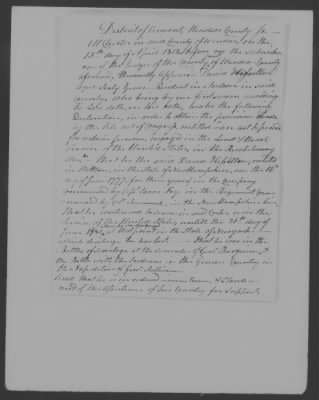 District of Vermont, Windsor County ss.
At Chester in said County of Windsor, on the
18th day of April 1818, before me the subscriber
one of the Judges of the County of Windsor County
aforesaid, Personally appeared David Hopelton
aged sixty years Resident in Andover in said
county, who being by me first sworn according
to law, doth, on his oath, make the following
Declaration, in order to obtain the provision made
by the late act of Congress, entitled an act to provide
for certain persons engaged in the Land & Naval
Service of the United States, in the Revolutionary
War. That he the said David Hopelton, enlisted
in Wilton, in the state of New Hampshire, on the 16th
day of June 1777, for three years in the Company
commanded by Capt Isaac Frye, in the Regiment com-
manded by Col. Scammel, in the New Hampshire line,
that he continued to serve in said Corps in the
service of the United States, untill the 20th day of
June 1780, when he was discharged at West point, in the State of New york
which discharge he has lost that he was in the
Battles of Saratoga & the surrender of Genl. Burgoyne, &
the Battle with the Indians in the Genesee Country in
the expedition of Genl. Sullivan
And that he is in reduced circumstances, & stands in
need of the assistance of his Country for support